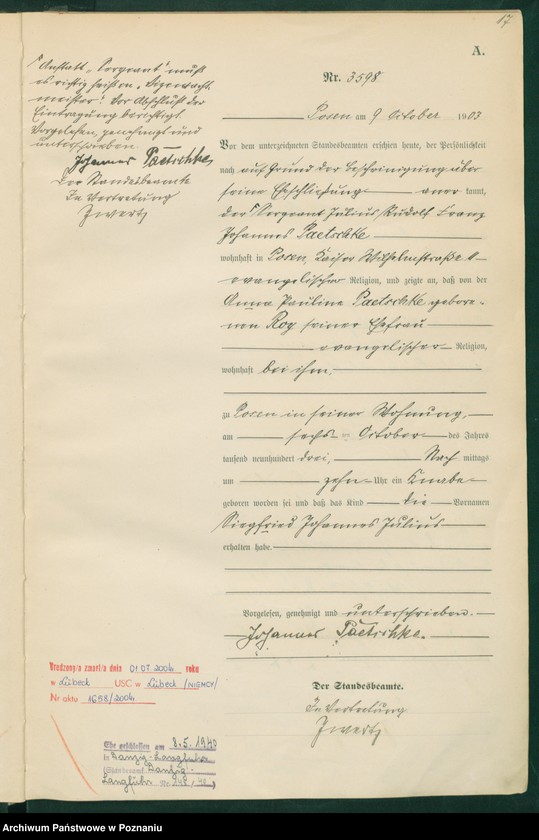 17
A.
Nr. 3598
Posen am 9 October 1903
Vor dem unterzeichneten Standesbeamten erschien heute, der Persönlichkeit
nach auf Grund der Bescheinigung über
seine Eheschließung anerkannt,
der Sergeant Julius Rudolf Franz
Johannes Paetschke
wohnhaft in Posen, Kaiser Wilhelmstraße
evangelischer Religion, und zeigte an, daß von der
Anna Pauline Paetschke gebore-
nen Roy seiner Ehefrau
evangelischer Religion,
wohnhaft bei ihm,
zu Posen in seiner Wohnung,
am sechs ten October des Jahres
tausend neunhundert drei, Nach mittags
um zehn Uhr ein Knabe
geboren worden sei und daß das Kind die Vornamen
Siegfried Johannes Julius
erhalten habe.
Vorgelesen, genehmigt und unterschrieben.
Johannes Paetschke.
Der Standesbeamte.
In Vertretung
Zwertz
Anstatt "Sergeant" muß
es richtig heißen
meister". Vor Abschluß der
Eintragung berichtigt.
Vorgelesen, genehmigt und
unterschrieben
Johannes Paetschke
Der Standesbeamte
In Vertretung
Urodzony/a zmarł/a dnia 01.07.2004 roku
w Lübeck USC w Lübeck /NIEMCY/
Nr aktu 1658/2004
Ehe geschlossen am 8.5.1940
in Danzig-Langfuhr
(Standesamt Danzig-
Langfuhr Nr. 148/40)
Archiwum Państwowe w Poznaniu